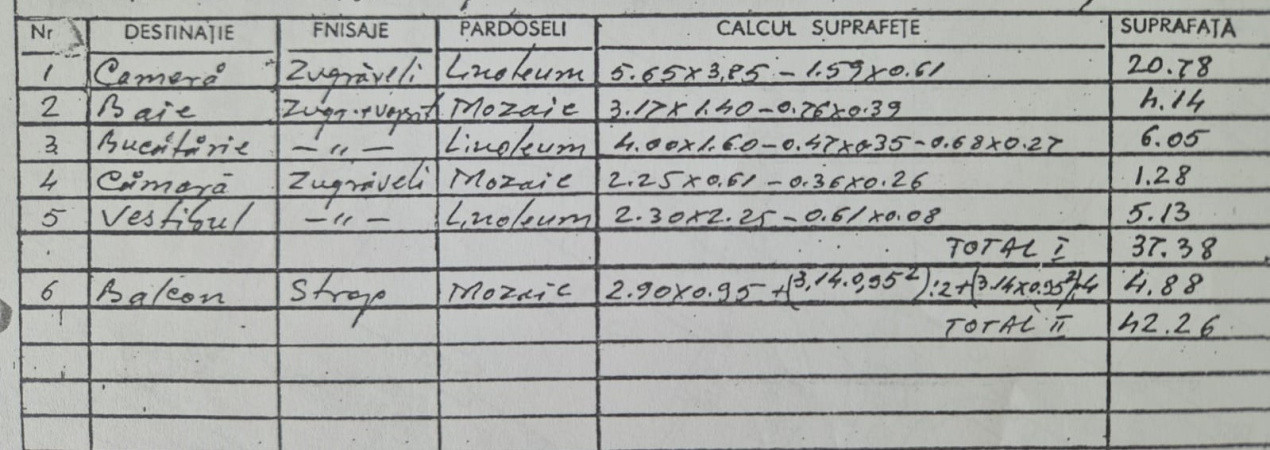 Nr DESTINAȚIE FNISAJE PARDOSELI CALCUL SUPRAFEȚE SUPRAFAȚĂ
1 Cameră Zugrăveli Linoleum 5.65x3,85 - 1.59x0.61 20.78
2 Baie Zugr.+vopsit Mozaic 3.17x1.40-0.76x0.39 4.14
3 Bucătărie -"- Linoleum 4.00x1.60-0.47x0.35-0.68x0.27 6.05
4 Cămară Zugrăveli Mozaic 2.25x0.61 - 0.36x0.26 1.28
5 Vestibul -"- Linoleum 2.30x2.25-0.61x0.08 5.13
TOTAL I 37.38
6 Balcon Strop Mozaic 2.90x0.95+(3,14.0,95²):2+(3.14x0.95²):4 4.88
TOTAL II 42.26